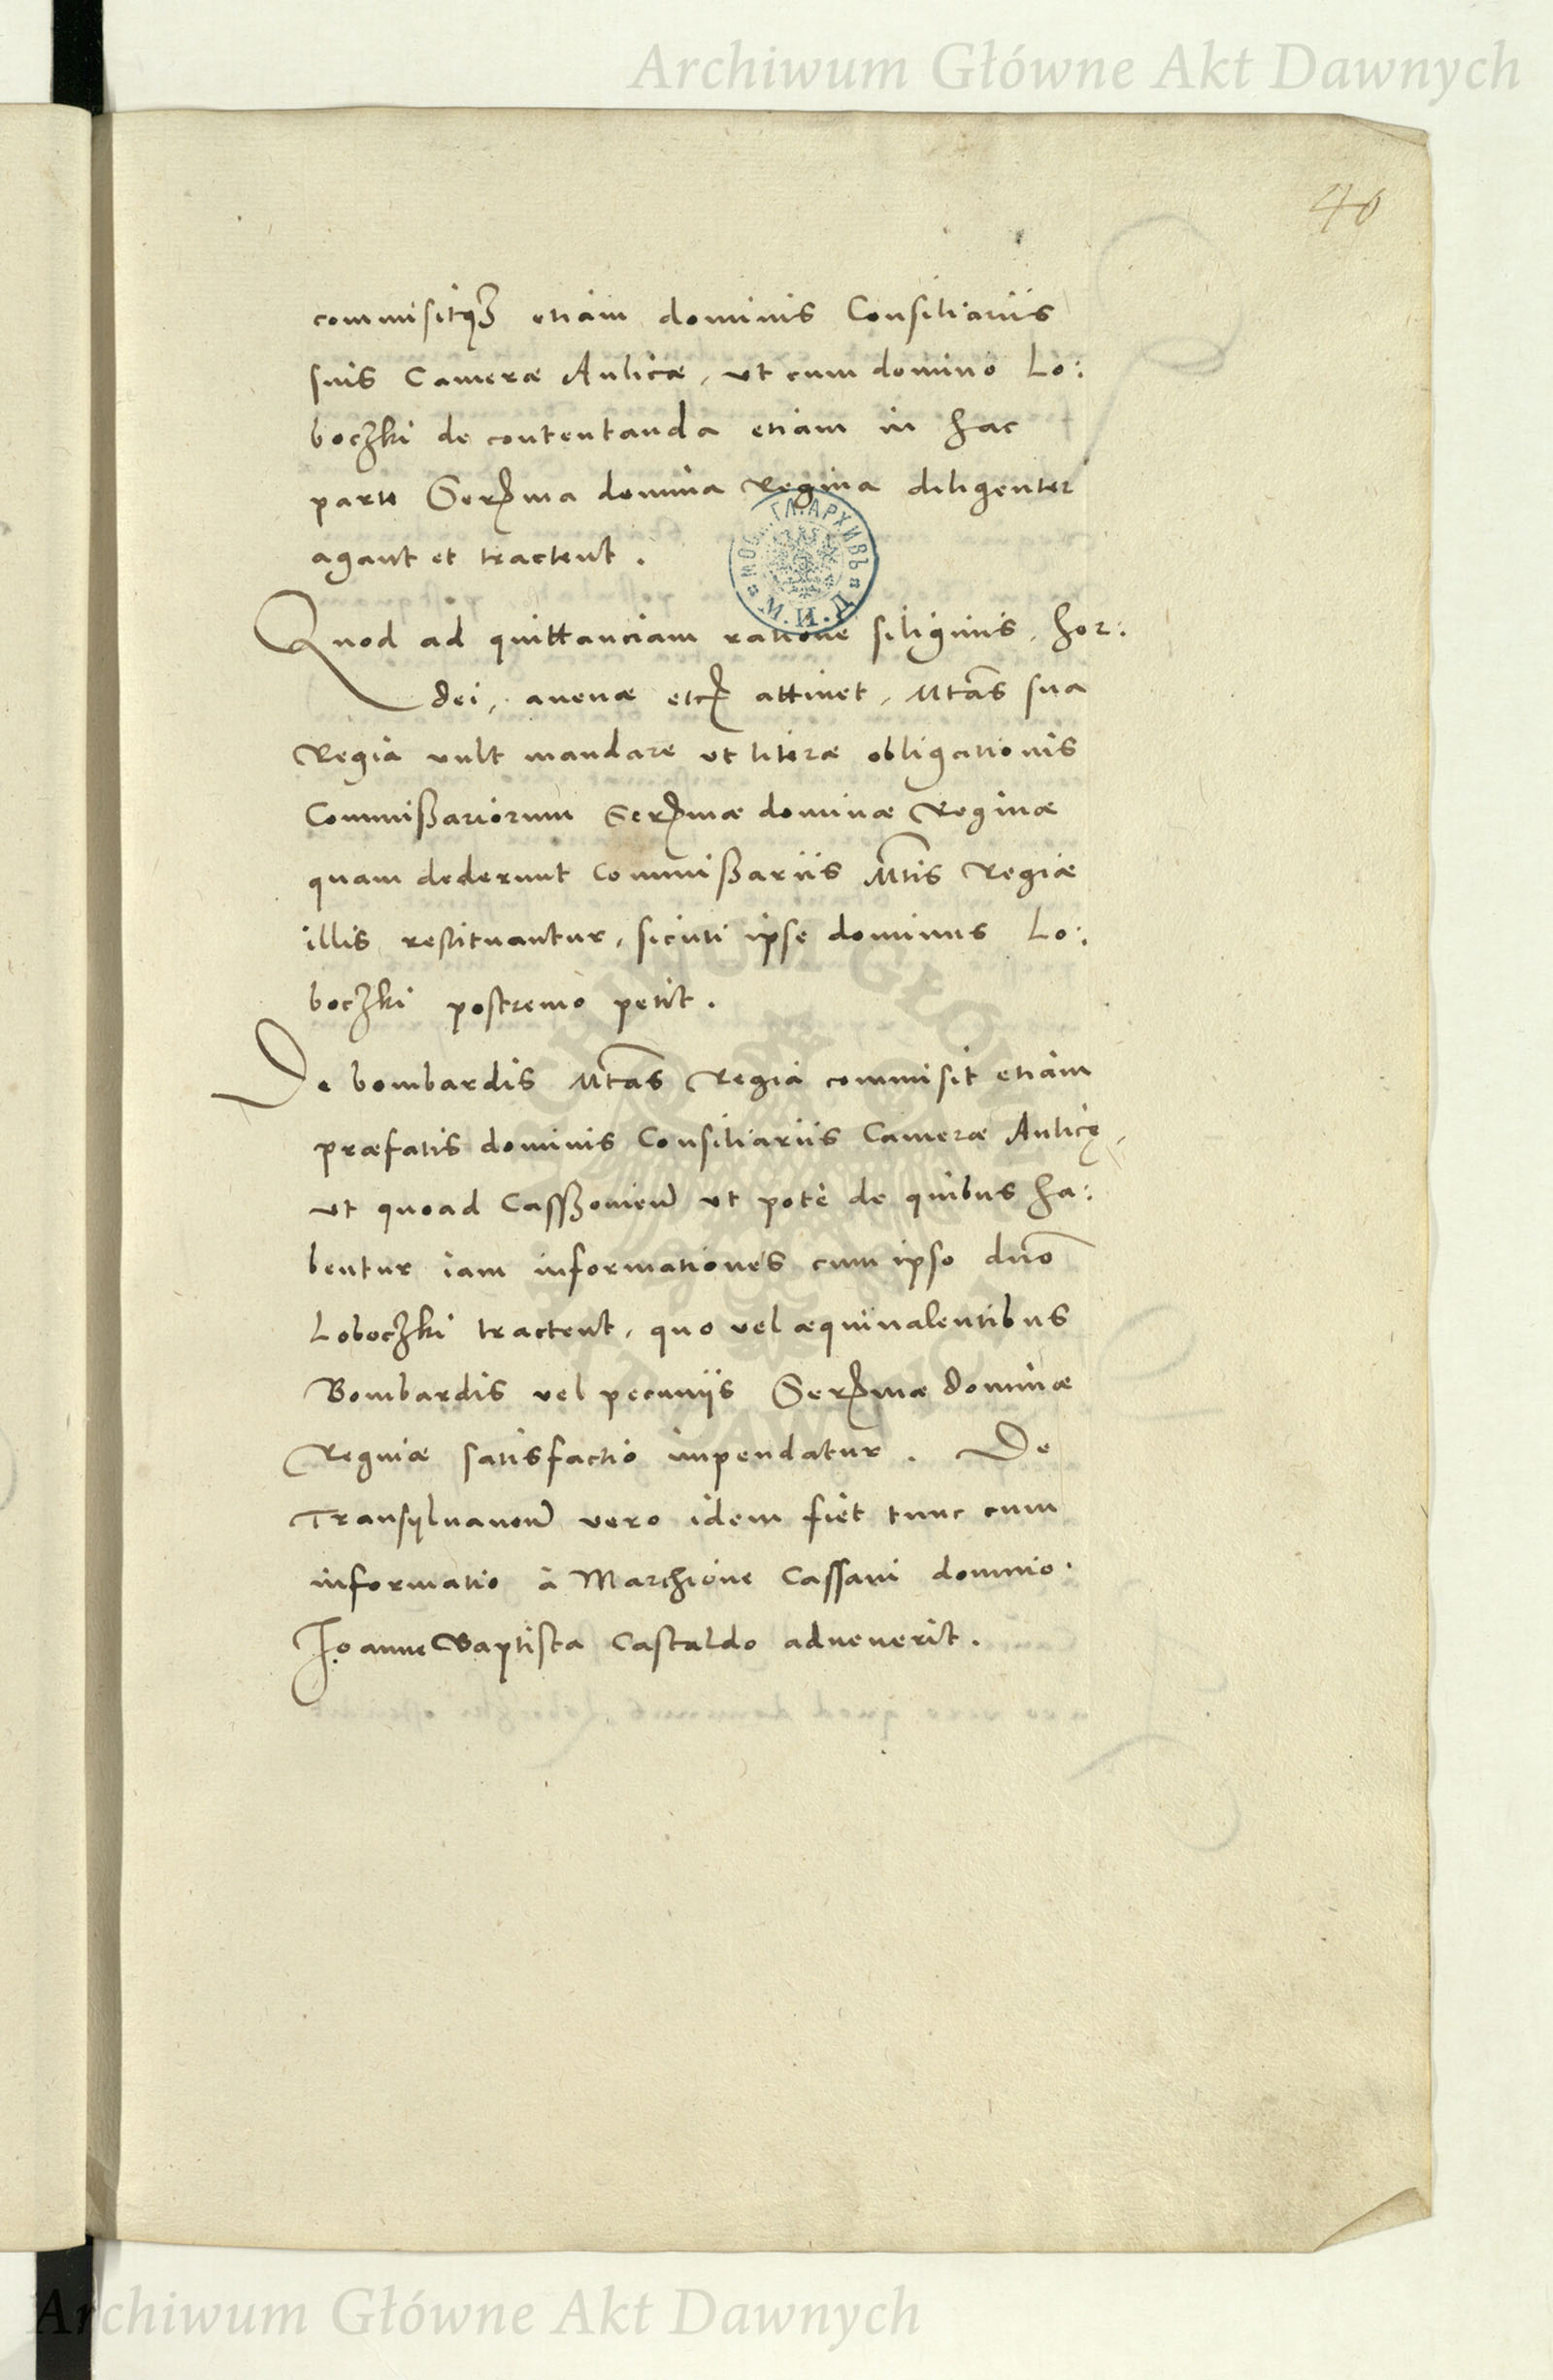 Archiwum Główne Akt Dawnych
40
commisitq₃ etiam dominis Consiliariis
suis Cameræ Aulicæ, ut cum domino Lo:
boczki de contentanda etiam in hac
parte Serma domina Regina diligenter
agant et tractent.
Quod ad quittanciam ratione siliginis, hor:
dei, avenæ etc attinet, Mtas sua
Regia vult mandare ut literæ obligationis
Commißariorum Sermæ dominæ Reginæ
quam dederunt Commißariis Mtis Regiæ
illis restituantur, sicuti ipse dominus Lo:
boczki postremo petit.
De bombardis Mtas Regia commisit etiam
præfatis dominis Consiliariis Cameræ Aulicę,
ut quoad Casßovien ut pote de quibus ha:
bentur iam informationes cum ipso dno
Loboczki tractent, quo vel æquivalentibus
Bombardis vel pecuniis Sermæ dominæ
Reginæ satisfactio impendatur. De
Transylvanen vero idem fiet tunc cum
informatio à Marchione Cassani domino
Joanne Baptista Castaldo advenerit.
МОС. ГЛ. АРХИВЪ
М.И.Д.
ARCHIWUM GŁÓWNE
AKT DAWNYCH
Archiwum Główne Akt Dawnych